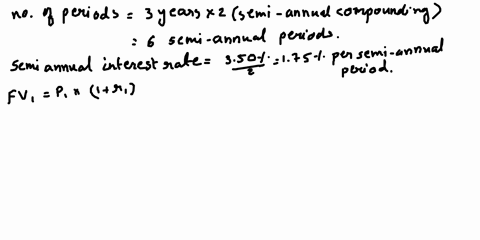 no. of periods = 3 years x 2 (semi-annual compounding)
= 6 semi-annual periods.
Semi annual interest rate = 3.50%/2 = 1.75% per semi-annual period.
FV₁ = P₁ x (1+r₁)